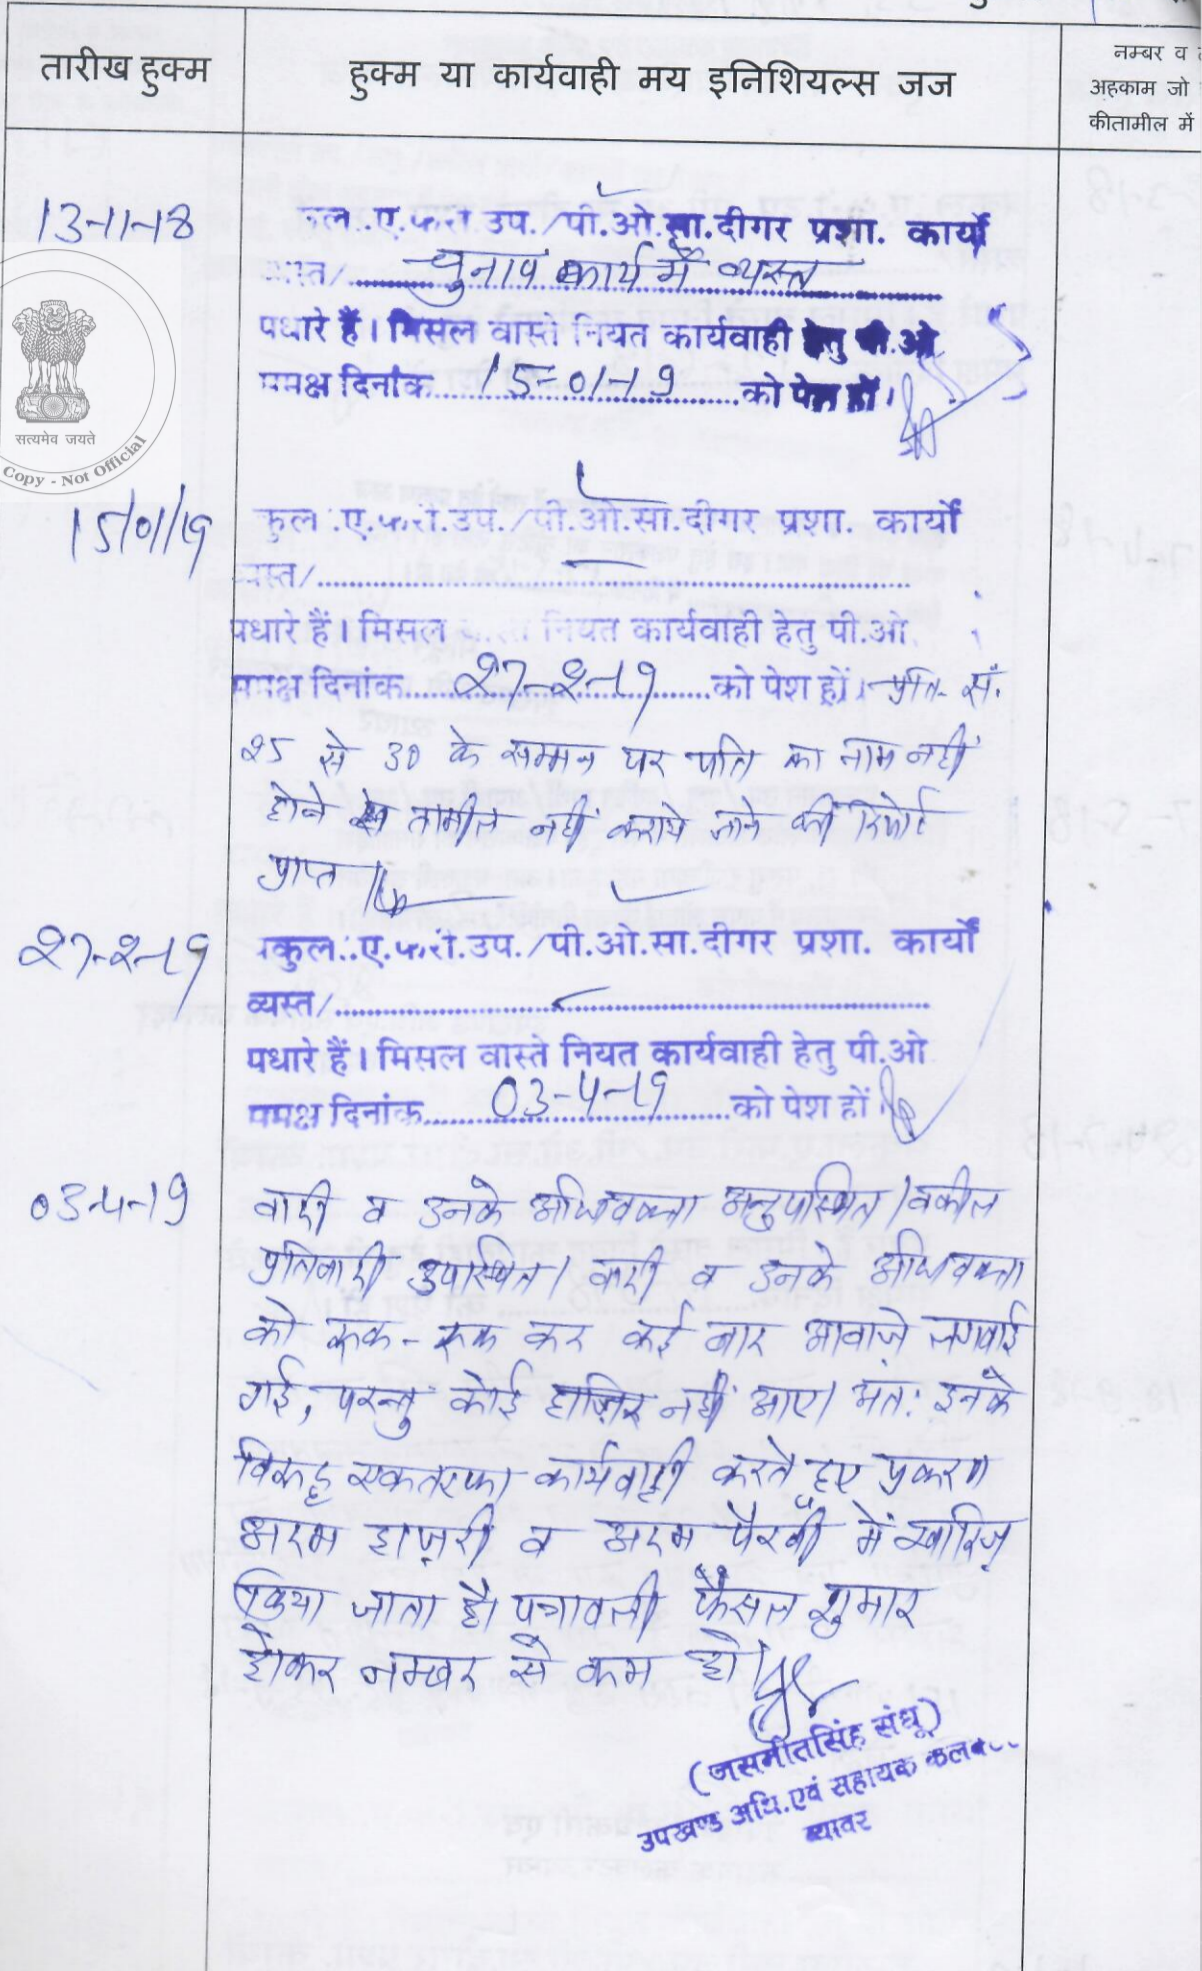 तारीख हुक्म
हुक्म या कार्यवाही मय इनिशियल्स जज
नम्बर व
अहकाम जो
कीतामील में
13-11-18
उप./पी.ओ.सा.दीगर प्रशा. कार्यो
चुनाव कार्य में व्यस्त
पधारे हैं। मिसल वास्ते नियत कार्यवाही हेतु पी.ओ
समक्ष दिनांक 15-01-19 को पेश हों।
सत्यमेव जयते
Copy - Not Official
15/01/19
उप./पी.ओ.सा.दीगर प्रशा. कार्यो
व्यस्त/
पधारे हैं। मिसल वास्ते नियत कार्यवाही हेतु पी.ओ.
समक्ष दिनांक 27-2-19 को पेश हों। प्रति. सं.
25 से 30 के सम्मन पर पति का नाम नहीं
होने से तामील नहीं कराये जाने की रिपोर्ट
प्राप्त।
27-2-19
उप./पी.ओ.सा.दीगर प्रशा. कार्यो
व्यस्त/
पधारे हैं। मिसल वास्ते नियत कार्यवाही हेतु पी.ओ
समक्ष दिनांक 03-4-19 को पेश हों।
03-4-19
वादी व उनके अधिवक्ता अनुपस्थित। वकील
प्रतिवादी उपस्थित। वादी व उनके अधिवक्ता
को रूक-रूक कर कई बार आवाजे लगवाई
गई, परन्तु कोई हाज़िर नहीं आए। अत: इनके
विरूद्ध एकतरफा कार्यवाही करते हुए प्रकरण
अदम हाज़री व अदम पैरवी में खारिज़
किया जाता है। पत्रावली फैसल शुमार
होकर नम्बर से कम हो।
(जसमीतसिंह संधू)
उपखण्ड अधि.एवं सहायक
ब्यावर